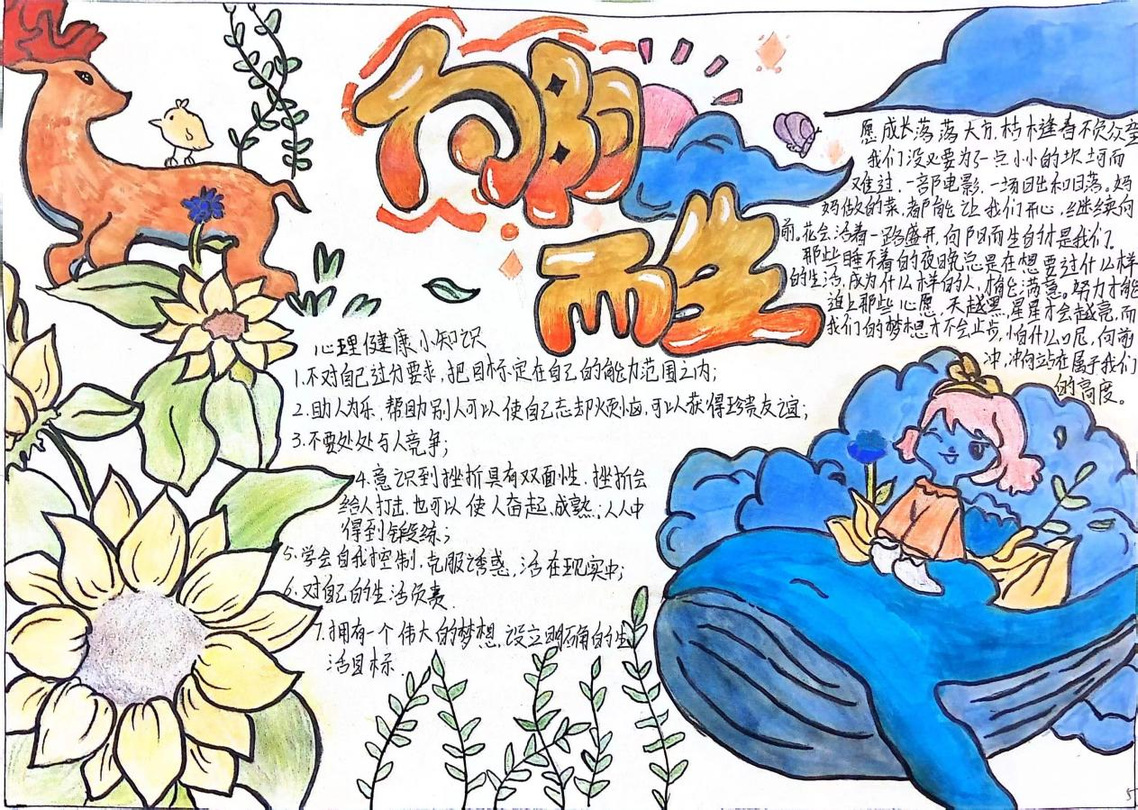 向阳
而生
愿成长落落大方,枯木逢春不负众望
我们没必要为了一点小小的坎坷而
难过,一部电影,一场日出和日落,妈
妈做的菜,都能让我们开心,继续向
前。花会沿着一路盛开,向阳而生自付是我们。
那些睡不着的夜晚总是在想要过什么样
的生活,成为什么样的人,惴惴满意。努力才能
追上那些心愿,天越黑,星星才会越亮,而
我们的梦想才不会止步,怕什么呢,向前
冲,冲向站在属于我们
的高度。
心理健康小知识
1.不对自己过分要求,把目标定在自己的能力范围之内;
2.助人为乐,帮助别人可以使自己忘却烦恼,可以获得珍贵友谊;
3.不要处处与人竞争;
4.意识到挫折具有双面性,挫折会
给人打击,也可以使人奋起、成熟,从中
得到锻练;
5.学会自我控制,克服诱惑,活在现实中;
6.对自己的生活负责.
7.拥有一个伟大的梦想,设立明确的生
活目标.